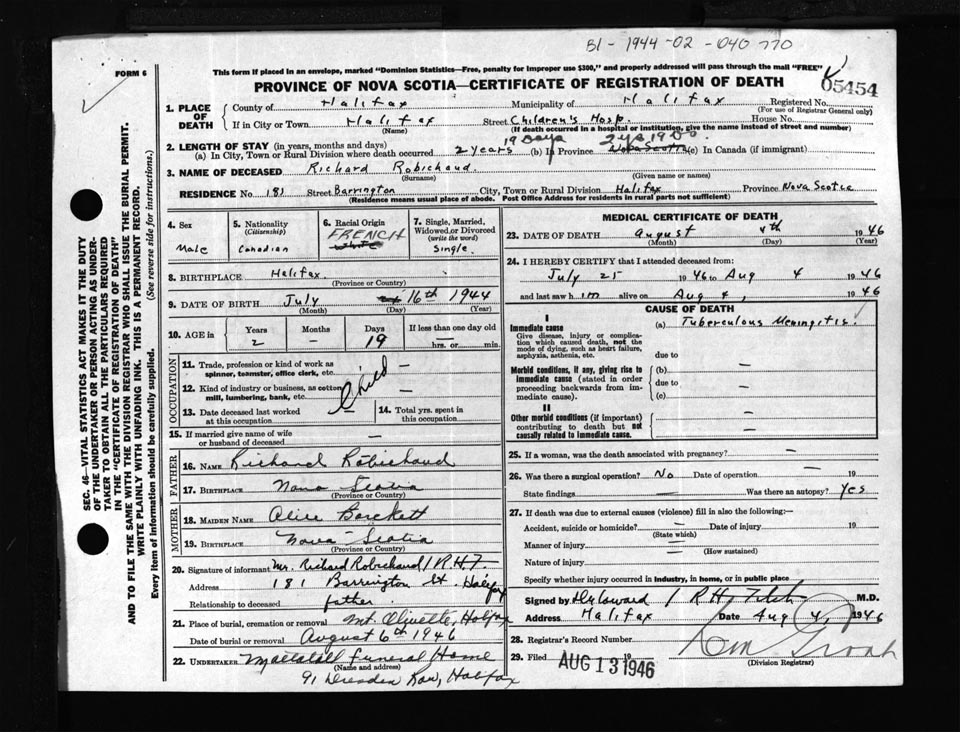 B1 - 1944-02 - 040 770
FORM 6
This form if placed in an envelope, marked "Dominion Statistics—Free, penalty for improper use $300," and properly addressed will pass through the mail "FREE"
PROVINCE OF NOVA SCOTIA—CERTIFICATE OF REGISTRATION OF DEATH
05454
1. PLACE OF DEATH
County of Halifax Municipality of Halifax Registered No.
(For use of Registrar General only)
If in City or Town Halifax Street Children's Hosp. House No.
(Name) (If death occurred in a hospital or institution, give the name instead of street and number)
2. LENGTH OF STAY (in years, months and days)
(a) In City, Town or Rural Division where death occurred 2 years 19 Days (b) In Province 2 ys 19 D. Nova Scotia (c) In Canada (if immigrant)
3. NAME OF DECEASED Richard Robichaud
(Surname) (Given name or names)
RESIDENCE No. 181 Street Barrington City, Town or Rural Division Halifax Province Nova Scotia
(Residence means usual place of abode. Post Office Address for residents in rural parts not sufficient)
4. Sex
Male
5. Nationality
(Citizenship)
Canadian
6. Racial Origin
FRENCH
7. Single, Married, Widowed or Divorced
(write the word)
Single.
8. BIRTHPLACE Halifax.
(Province or Country)
9. DATE OF BIRTH July 16th 1944
(Month) (Day) (Year)
10. AGE in
Years Months Days If less than one day old
2 — 19 — hrs. or min.
OCCUPATION
11. Trade, profession or kind of work as spinner, teamster, office clerk, etc.
12. Kind of industry or business, as cotton mill, lumbering, bank, etc.
Child
13. Date deceased last worked at this occupation
14. Total yrs. spent in this occupation
15. If married give name of wife or husband of deceased —
FATHER
16. NAME Richard Robichaud
17. BIRTHPLACE Nova Scotia
(Province or Country)
MOTHER
18. MAIDEN NAME Alice
19. BIRTHPLACE Nova Scotia
(Province or Country)
20. Signature of informant Mr. Richard Robichaud / R.H.F.
Address 181 Barrington St. Halifax
Relationship to deceased father.
21. Place of burial, cremation or removal Mt. Olivette, Halifax
Date of burial or removal August 6th 1946
22. UNDERTAKER Mattatall Funeral Home
(Name and address)
91 Dresden Row, Halifax
MEDICAL CERTIFICATE OF DEATH
23. DATE OF DEATH August 4th 1946
(Month) (Day) (Year)
24. I HEREBY CERTIFY that I attended deceased from:
July 25 1946 to Aug 4 1946
and last saw h im alive on Aug 4, 1946
CAUSE OF DEATH
I
Immediate cause
Give disease, injury or complication which caused death, not the mode of dying, such as heart failure, asphyxia, asthenia, etc.
(a) Tuberculous Meningitis.
due to —
Morbid conditions, if any, giving rise to immediate cause (stated in order proceeding backwards from immediate cause).
(b) —
due to —
(c)
II
Other morbid conditions (if important) contributing to death but not causally related to immediate cause.
—
25. If a woman, was the death associated with pregnancy? —
26. Was there a surgical operation? No Date of operation — 19
State findings — Was there an autopsy? Yes
27. If death was due to external causes (violence) fill in also the following:—
Accident, suicide or homicide? — Date of injury 19
(State which)
Manner of injury —
(How sustained)
Nature of injury —
Specify whether injury occurred in industry, in home, or in public place
Signed by / R.H. M.D.
Address Halifax Date Aug 4, 1946
28. Registrar's Record Number
29. Filed AUG 13 1946 19
(Division Registrar)
SEC. 46—VITAL STATISTICS ACT MAKES IT THE DUTY
OF THE UNDERTAKER OR PERSON ACTING AS UNDER-
TAKER TO OBTAIN ALL THE PARTICULARS REQUIRED
IN THE "CERTIFICATE OF REGISTRATION OF DEATH"
AND TO FILE THE SAME WITH THE DIVISION REGISTRAR WHO SHALL ISSUE THE BURIAL PERMIT.
WRITE PLAINLY WITH UNFADING INK. THIS IS A PERMANENT RECORD.
Every item of information should be carefully supplied. (See reverse side for instructions.)